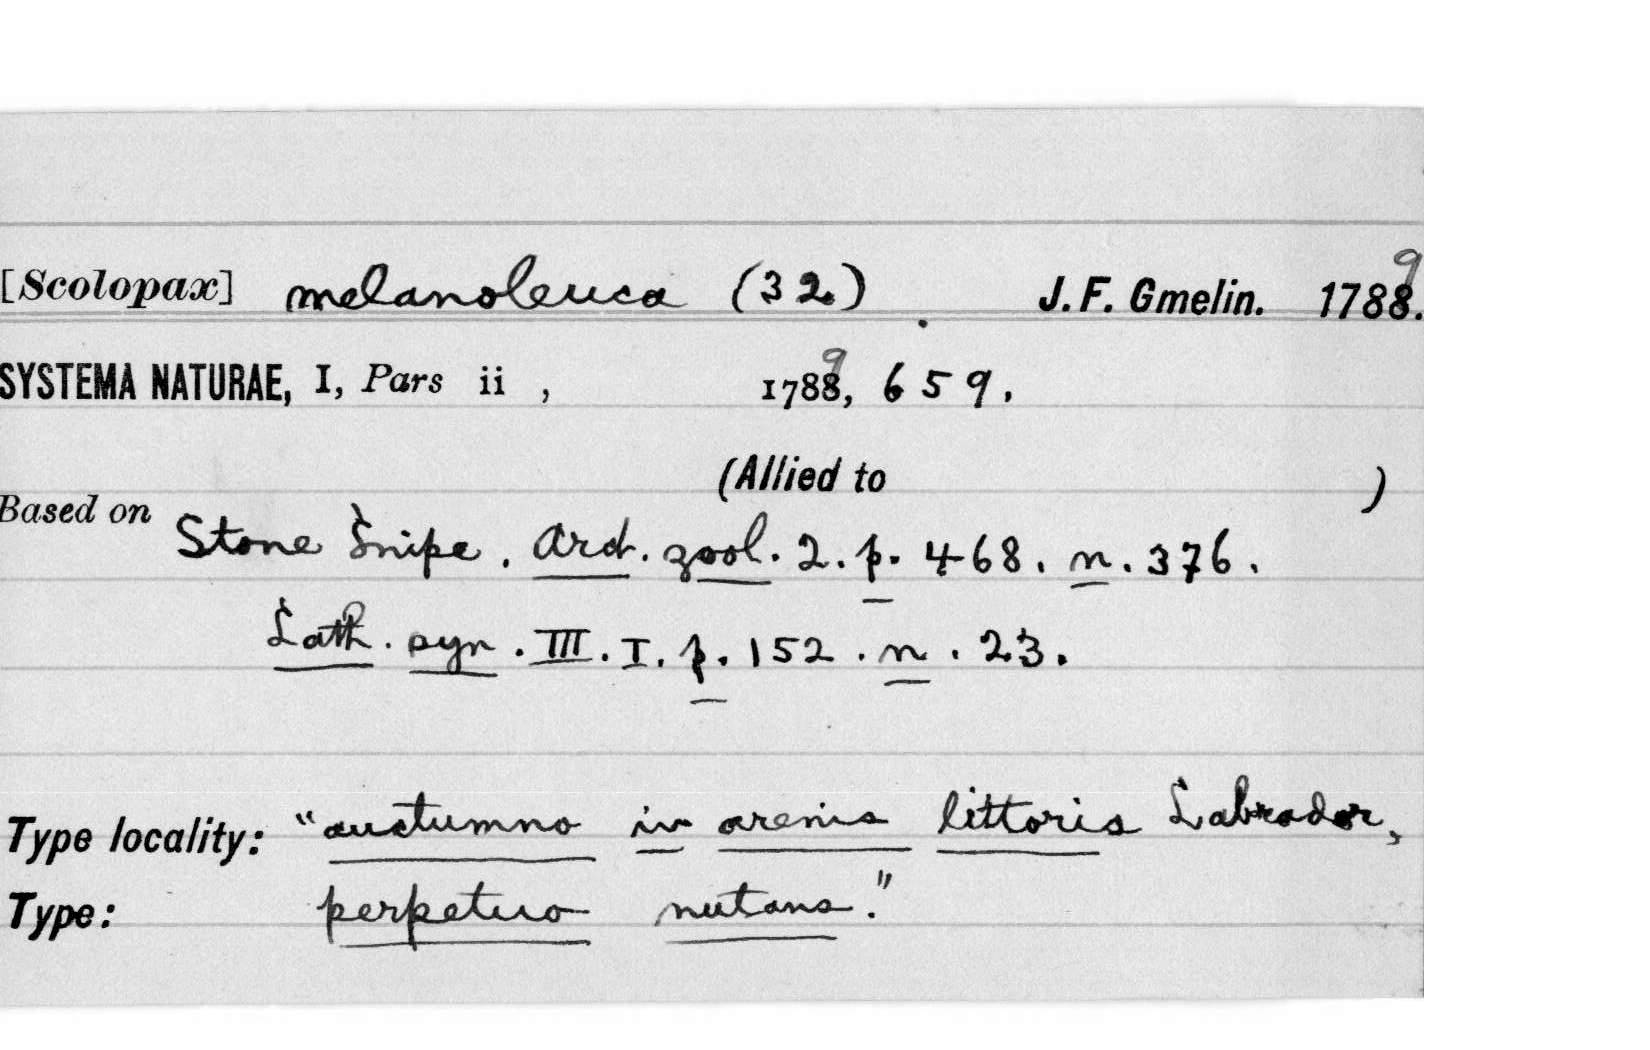 [Scolopax] melanoleuca (32) J. F. Gmelin. 17889.
SYSTEMA NATURAE, I, Pars ii , 17889, 659.
(Allied to )
Based on Stone Snipe. Arct. zool. 2. p. 468. n. 376.
Lath. syn. III. I. p. 152. n. 23.
Type locality: "auctumno in arenis littoris Labrador,
Type: perpetuo nutans."